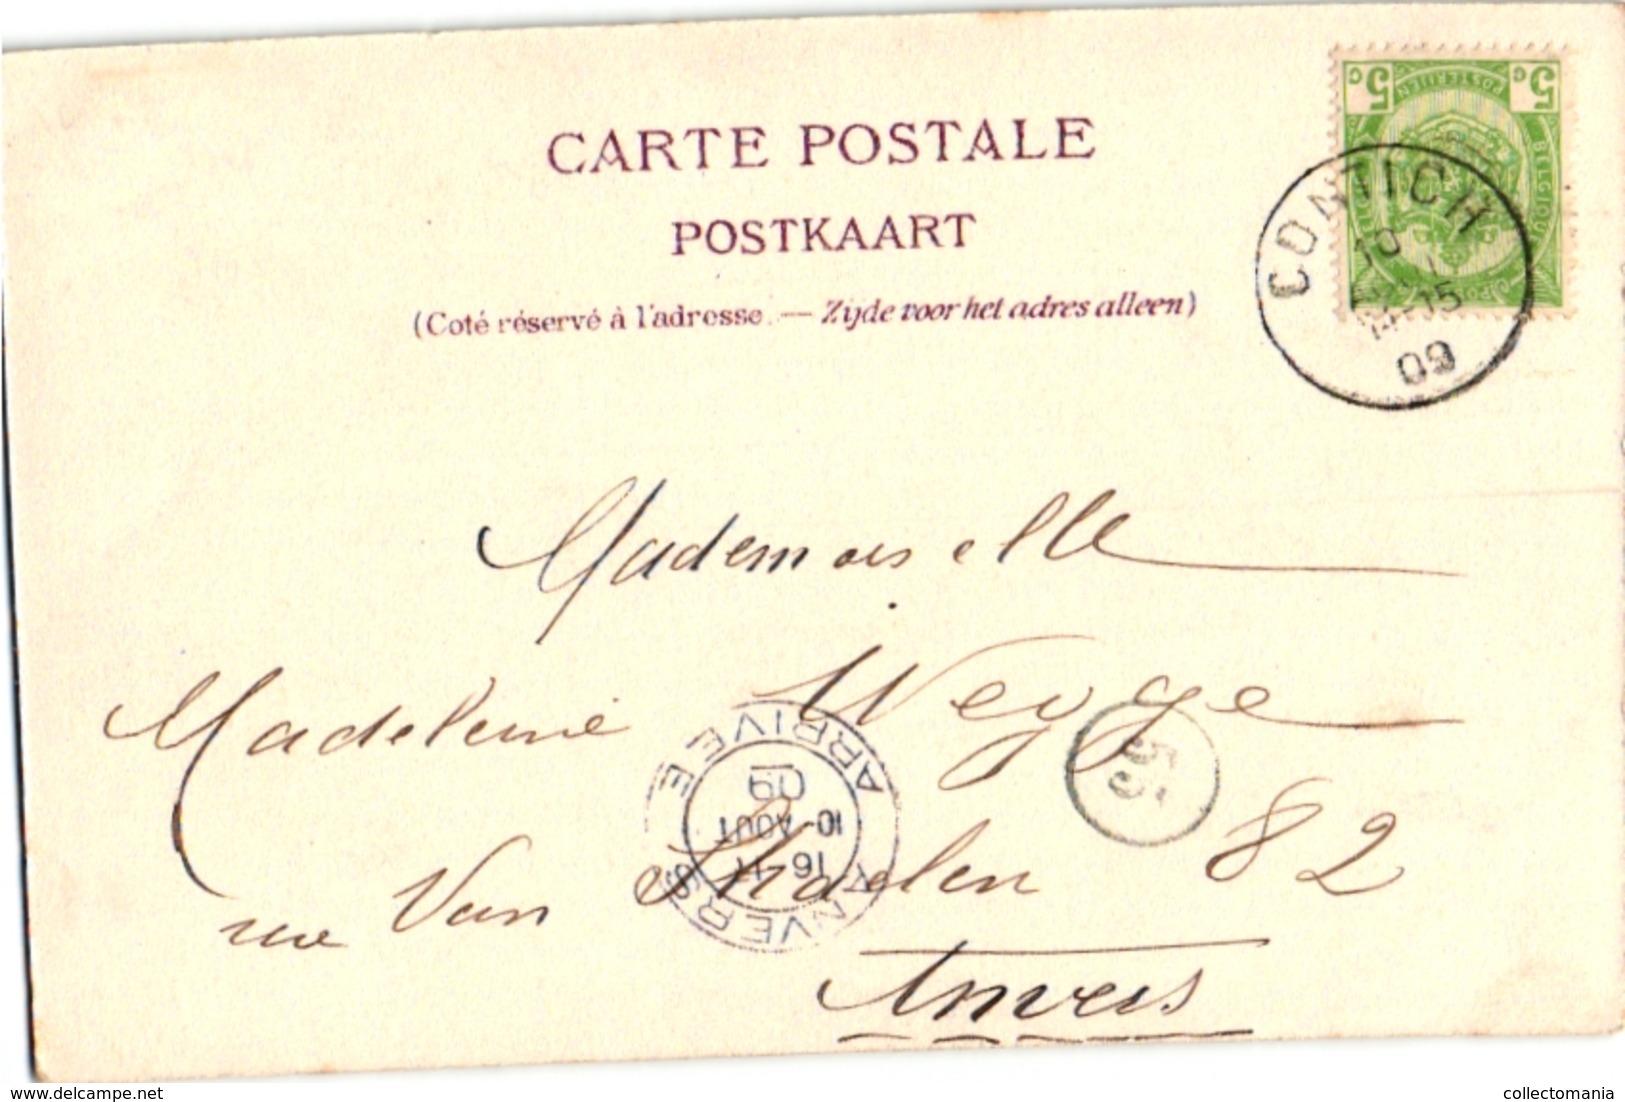 CARTE POSTALE
POSTKAART
(Coté réservé à l'adresse. — Zijde voor het adres alleen)
5c 5c
POSTERIJEN
BELGIQUE
CONTICH
10
14-15
09
Mademoiselle
Madeleine Weyge
rue Van 82
Anvers
ANVERS ARRIVEE
16-17
10-AOUT
09
delcampe.net
collectomania